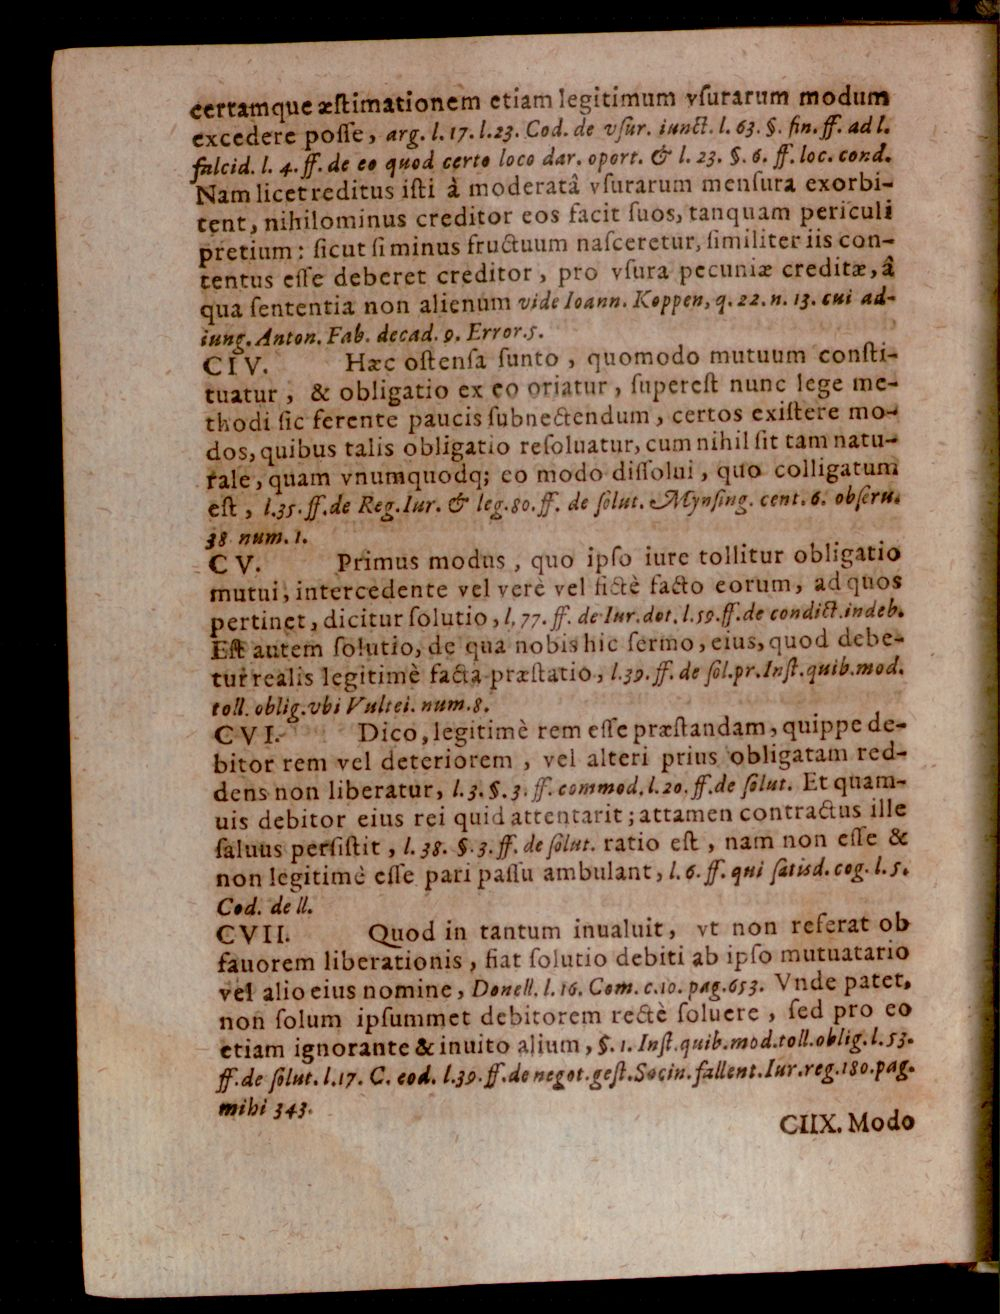 certamque æstimationem etiam legitimum vſurarum modum
excedere poſſe, arg. l. 17. l. 23. Cod. de vſur. iunct. l. 63. §. fin. ff. ad l.
falcid. l. 4. ff. de eo quod certo loco dar. oport. & l. 23. §. 6. ff. loc. cond.
Nam licet reditus iſti â moderatâ vſurarum menſura exorbi-
tent, nihilominus creditor eos facit ſuos, tanquam periculi
pretium: ſicut ſi minus fructuum naſceretur, ſimiliter iis con-
tentus eſſe deberet creditor, pro vſura pecuniæ creditæ, â
qua ſententia non alienum vide Ioann. Koppen, q. 22. n. 13. cui ad-
iung. Anton. Fab. decad. 9. Error. 5.
CIV. Hæc oſtenſa ſunto, quomodo mutuum conſti-
tuatur, & obligatio ex eo oriatur, ſupereſt nunc lege me-
thodi ſic ferente paucis ſubnectendum, certos exiſtere mo-
dos, quibus talis obligatio reſoluatur, cum nihil ſit tam natu-
rale, quam vnumquodq; eo modo diſſolui, quo colligatum
eſt, l. 35. ff. de Reg. Iur. & leg. 80. ff. de ſolut. Mynſing. cent. 6. obſeru.
38 num. 1.
CV. Primus modus, quo ipſo iure tollitur obligatio
mutui, intercedente vel verè vel fictè facto eorum, ad quos
pertinet, dicitur ſolutio, l. 77. ff. de Iur. dot. l. 59. ff. de condict. indeb.
Eſt autem ſolutio, de qua nobis hic ſermo, eius, quod debe-
tur realis legitimè facta præſtatio, l. 39. ff. de ſol. pr. Inſt. quib. mod.
toll. oblig. vbi Vultei. num. 8.
CVI. Dico, legitimè rem eſſe præſtandam, quippe de-
bitor rem vel deteriorem, vel alteri prius obligatam red-
dens non liberatur, l. 3. §. 3. ff. commod. l. 20. ff. de ſolut. Et quam-
uis debitor eius rei quid attentarit; attamen contractus ille
ſaluus perſiſtit, l. 38. §. 3. ff. de ſolut. ratio eſt, nam non eſſe &
non legitimè eſſe pari paſſu ambulant, l. 6. ff. qui ſatisd. cog. l. 5.
Cod. de ll.
CVII. Quod in tantum inualuit, vt non referat ob
fauorem liberationis, fiat ſolutio debiti ab ipſo mutuatario
vel alio eius nomine, Donell. l. 16. Com. c. 10. pag. 653. Vnde patet,
non ſolum ipſummet debitorem rectè ſoluere, ſed pro eo
etiam ignorante & inuito alium, §. 1. Inſt. quib. mod. toll. oblig. l. 53.
ff. de ſolut. l. 17. C. eod. l. 39. ff. de negot. geſt. Socin. fallent. Iur. reg. 180. pag.
mihi 343.
CIIX. Modo